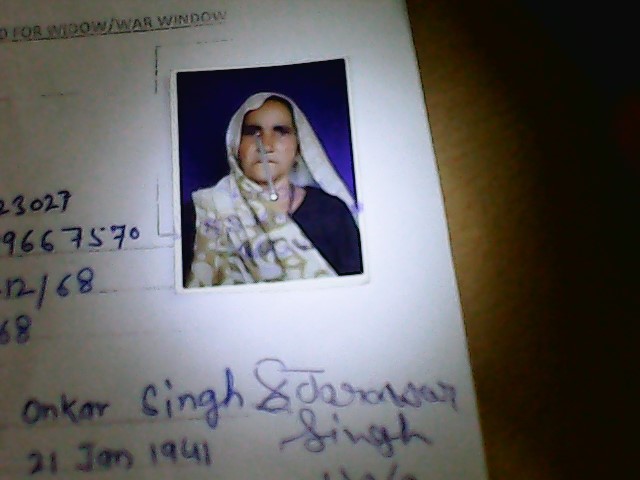 FOR WIDOW/WAR WINDOW
23027
9667570
12/68
68
Onkar Singh
Singh
21 Jan 1941